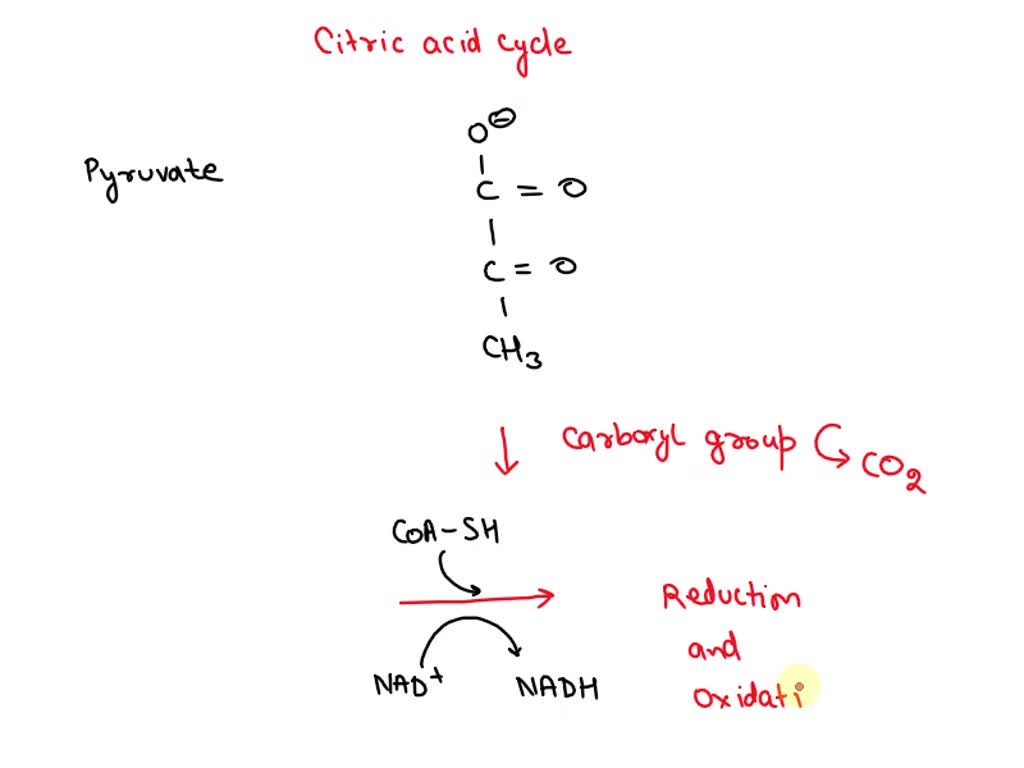 Citric acid cycle
O⊖
Pyruvate
C = O
C = O
CH3
Carboxyl group CO2
CoA-SH
Reduction
and
NAD+ NADH
Oxidati